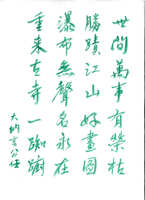 世間萬事有榮枯
勝蹟江山好畫圖
瀑布無聲名永在
重来古寺一踟蹰
大納言公任